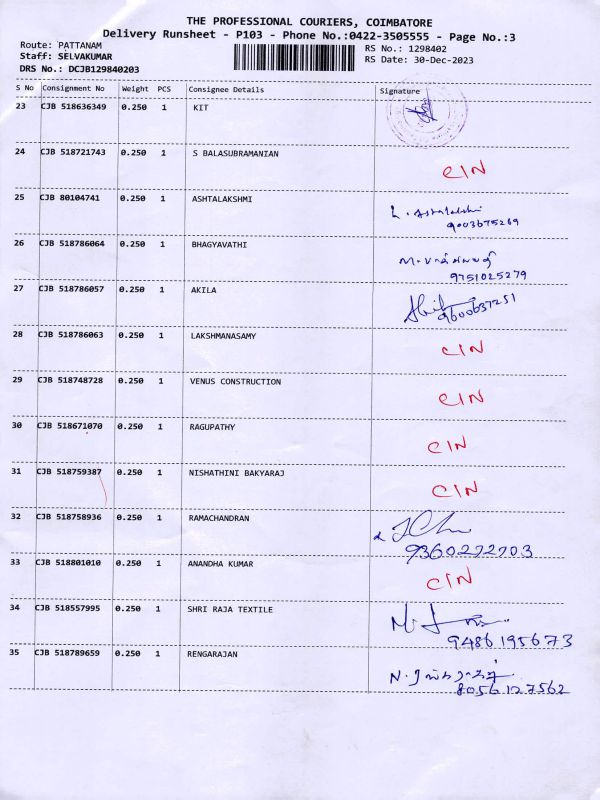 THE PROFESSIONAL COURIERS, COIMBATORE
Delivery Runsheet - P103 - Phone No.:0422-3505555 - Page No.:3
Route: PATTANAM RS No.: 1298402
Staff: SELVAKUMAR RS Date: 30-Dec-2023
DRS No.: DCJB129840203
S No Consignment No Weight PCS Consignee Details Signature
23 CJB 518636349 0.250 1 KIT
24 CJB 518721743 0.250 1 S BALASUBRAMANIAN CIN
25 CJB 80104741 0.250 1 ASHTALAKSHMI
9003675269
26 CJB 518786064 0.250 1 BHAGYAVATHI
9751025279
27 CJB 518786057 0.250 1 AKILA
9600637251
28 CJB 518786063 0.250 1 LAKSHMANASAMY CIN
29 CJB 518748728 0.250 1 VENUS CONSTRUCTION CIN
30 CJB 518671070 0.250 1 RAGUPATHY CIN
31 CJB 518759387 0.250 1 NISHATHINI BAKYARAJ CIN
32 CJB 518758936 0.250 1 RAMACHANDRAN
9360272703
33 CJB 518801010 0.250 1 ANANDHA KUMAR CIN
34 CJB 518557995 0.250 1 SHRI RAJA TEXTILE
9486195673
35 CJB 518789659 0.250 1 RENGARAJAN
8056127562